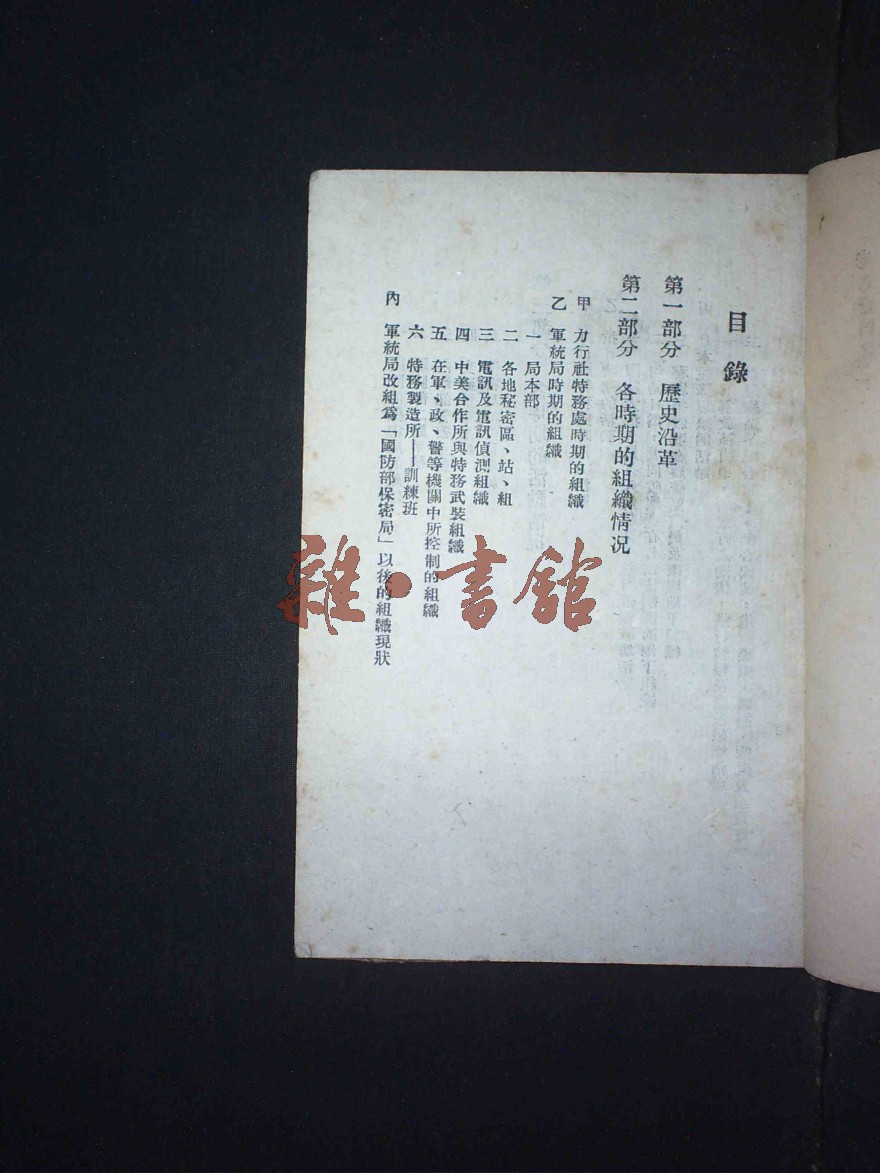 目錄
第一部分　歷史沿革
第二部分　各時期的組織情况
甲　力行社特務處時期的組織
乙　軍統局時期的組織
一　局本部
二　各地秘密區、站、組
三　電訊及電訊偵測組織
四　中美合作所與特務武裝組織
五　在軍、政、警等機關中所控制的組織
六　特務製造所——訓練班
內　軍統局改組爲「國防部保密局」以後的組織現狀
雜·書館